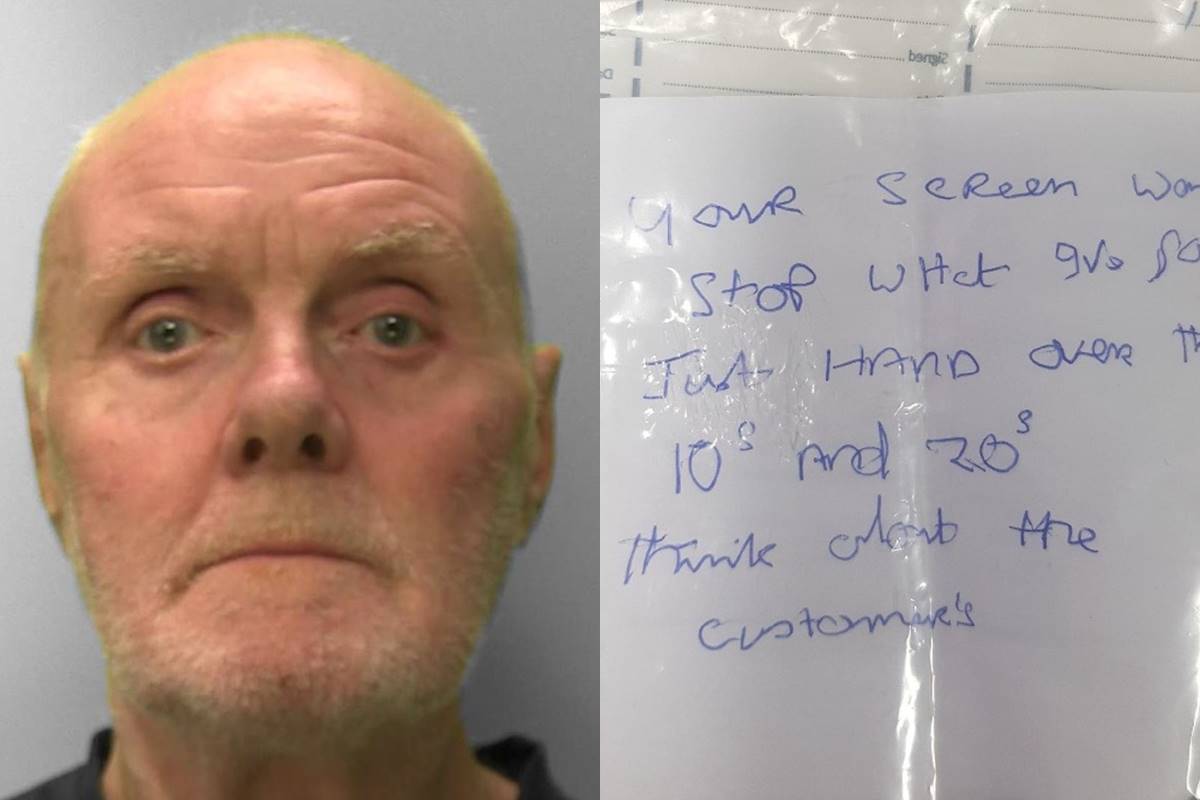 Signed
your Screen wo
Stop what gvs fo
Just HAND over th
10s And 20s
think about the
customer's